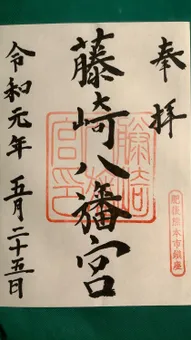 奉拝
藤崎八旛宮
令和元年 五月二十五日
藤崎八旛宮印
肥後熊本市鎮座